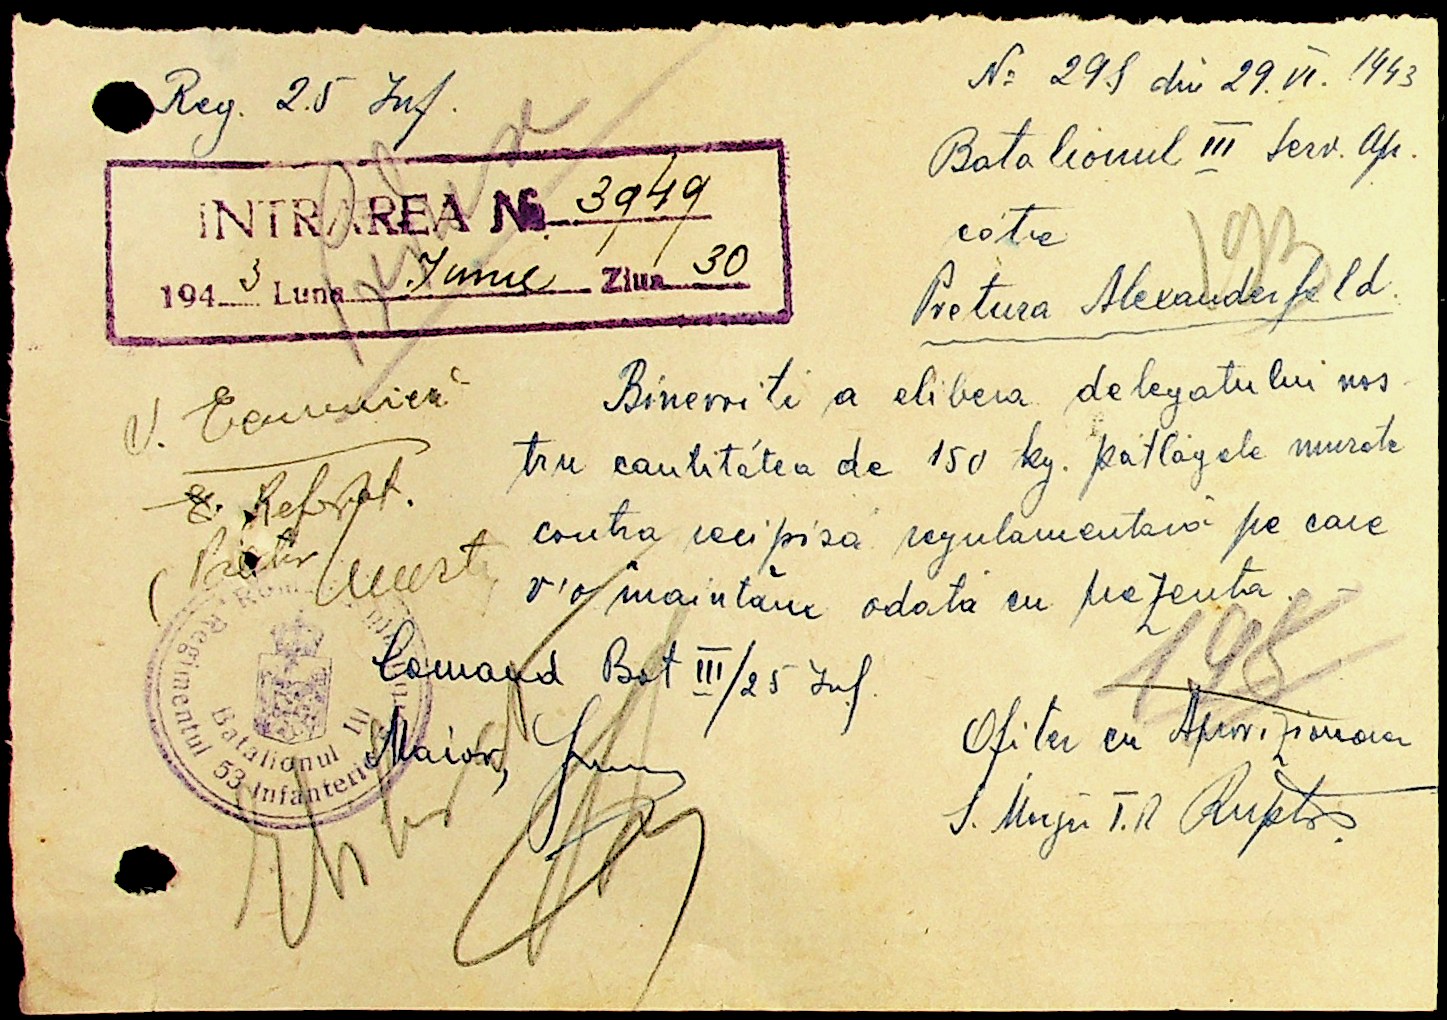 Reg. 25 Inf.
No 298 din 29.VI.1943
Batalionul III Serv. Ap.
către
Pretura Alexanderfeld
INTRAREA No. 3949
1943 Luna Iunie Ziua 30
Binevoiti a elibera delegatului nos
tru cantitatea de 150 kg. pătlăgele murate
contra recipisă regulamentară pe care
v'o înaintăm odată cu prezenta.
S. Economică
Referat.
193
195
Comand Bat III/25 Inf.
Maior,
Ofiter cu Aprovizionarea
S. T.R.
Regimentul 53 Infanterie
Batalionul III